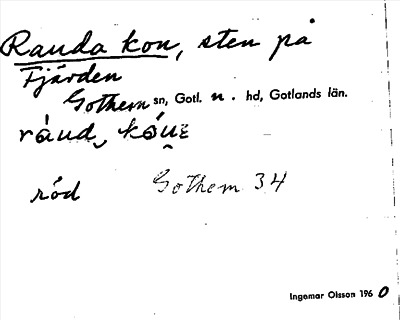 Rauda kon, sten på
Fjärden
Gothem sn, Gotl. n. hd, Gotlands län.
ráud, kóuɛ
röd Gothem 34
Ingemar Olsson 1960